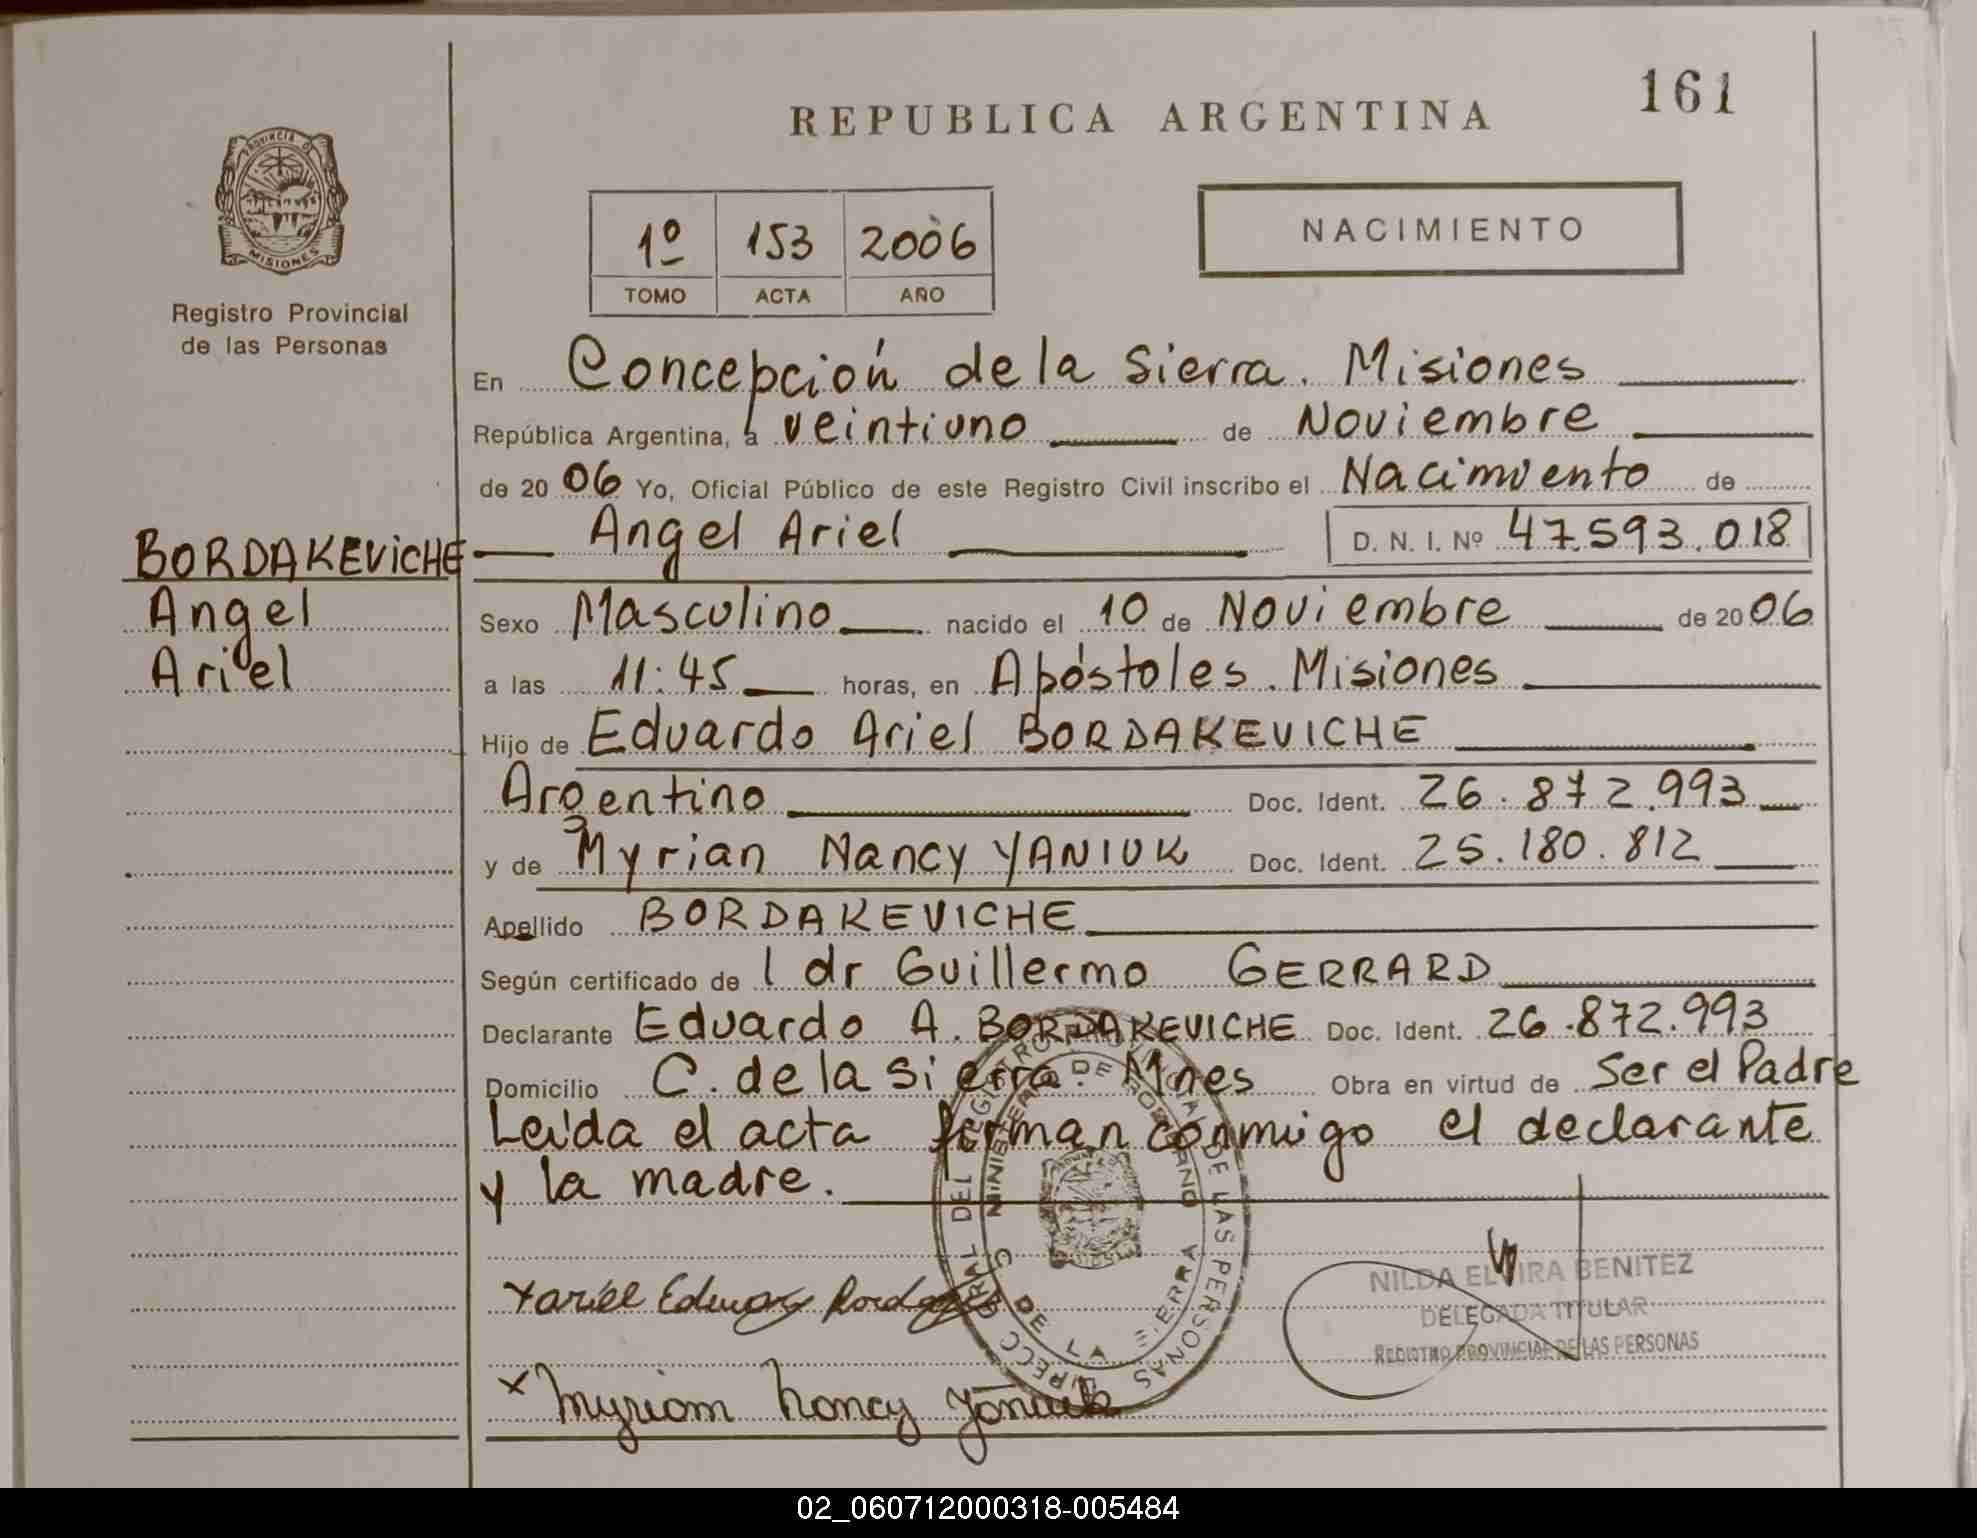 161
REPUBLICA ARGENTINA
PROVINCIA D
MISIONES
Registro Provincial
de las Personas
1º 153 2006
TOMO ACTA AÑO
NACIMIENTO
En Concepción de la Sierra. Misiones
República Argentina, a veintiuno de Noviembre
de 2006 Yo, Oficial Público de este Registro Civil inscribo el Nacimiento de
BORDAKEVICHE Angel Ariel D. N. I. Nº 47.593.018
Angel
Ariel
Sexo Masculino nacido el 10 de Noviembre de 2006
a las 11:45 horas, en Apóstoles. Misiones
Hijo de Eduardo Ariel BORDAKEVICHE
Argentino Doc. Ident. 26.872.993
y de Myrian Nancy YANIUK Doc. Ident. 25.180.812
Apellido BORDAKEVICHE
Según certificado de l dr Guillermo GERRARD
Declarante Eduardo A. BORDAKEVICHE Doc. Ident. 26.872.993
Domicilio C. de la Sierra. Mnes Obra en virtud de Ser el Padre
Leída el acta firman conmigo el declarante
y la madre.
NILDA ELVIRA BENITEZ
DELEGADA TITULAR
REGISTRO PROVINCIAL DE LAS PERSONAS
DE LAS PERSONAS
C. DE LA SIERRA
x Ariel Eduardo
x Myriam Nancy Yaniuk
02_060712000318-005484